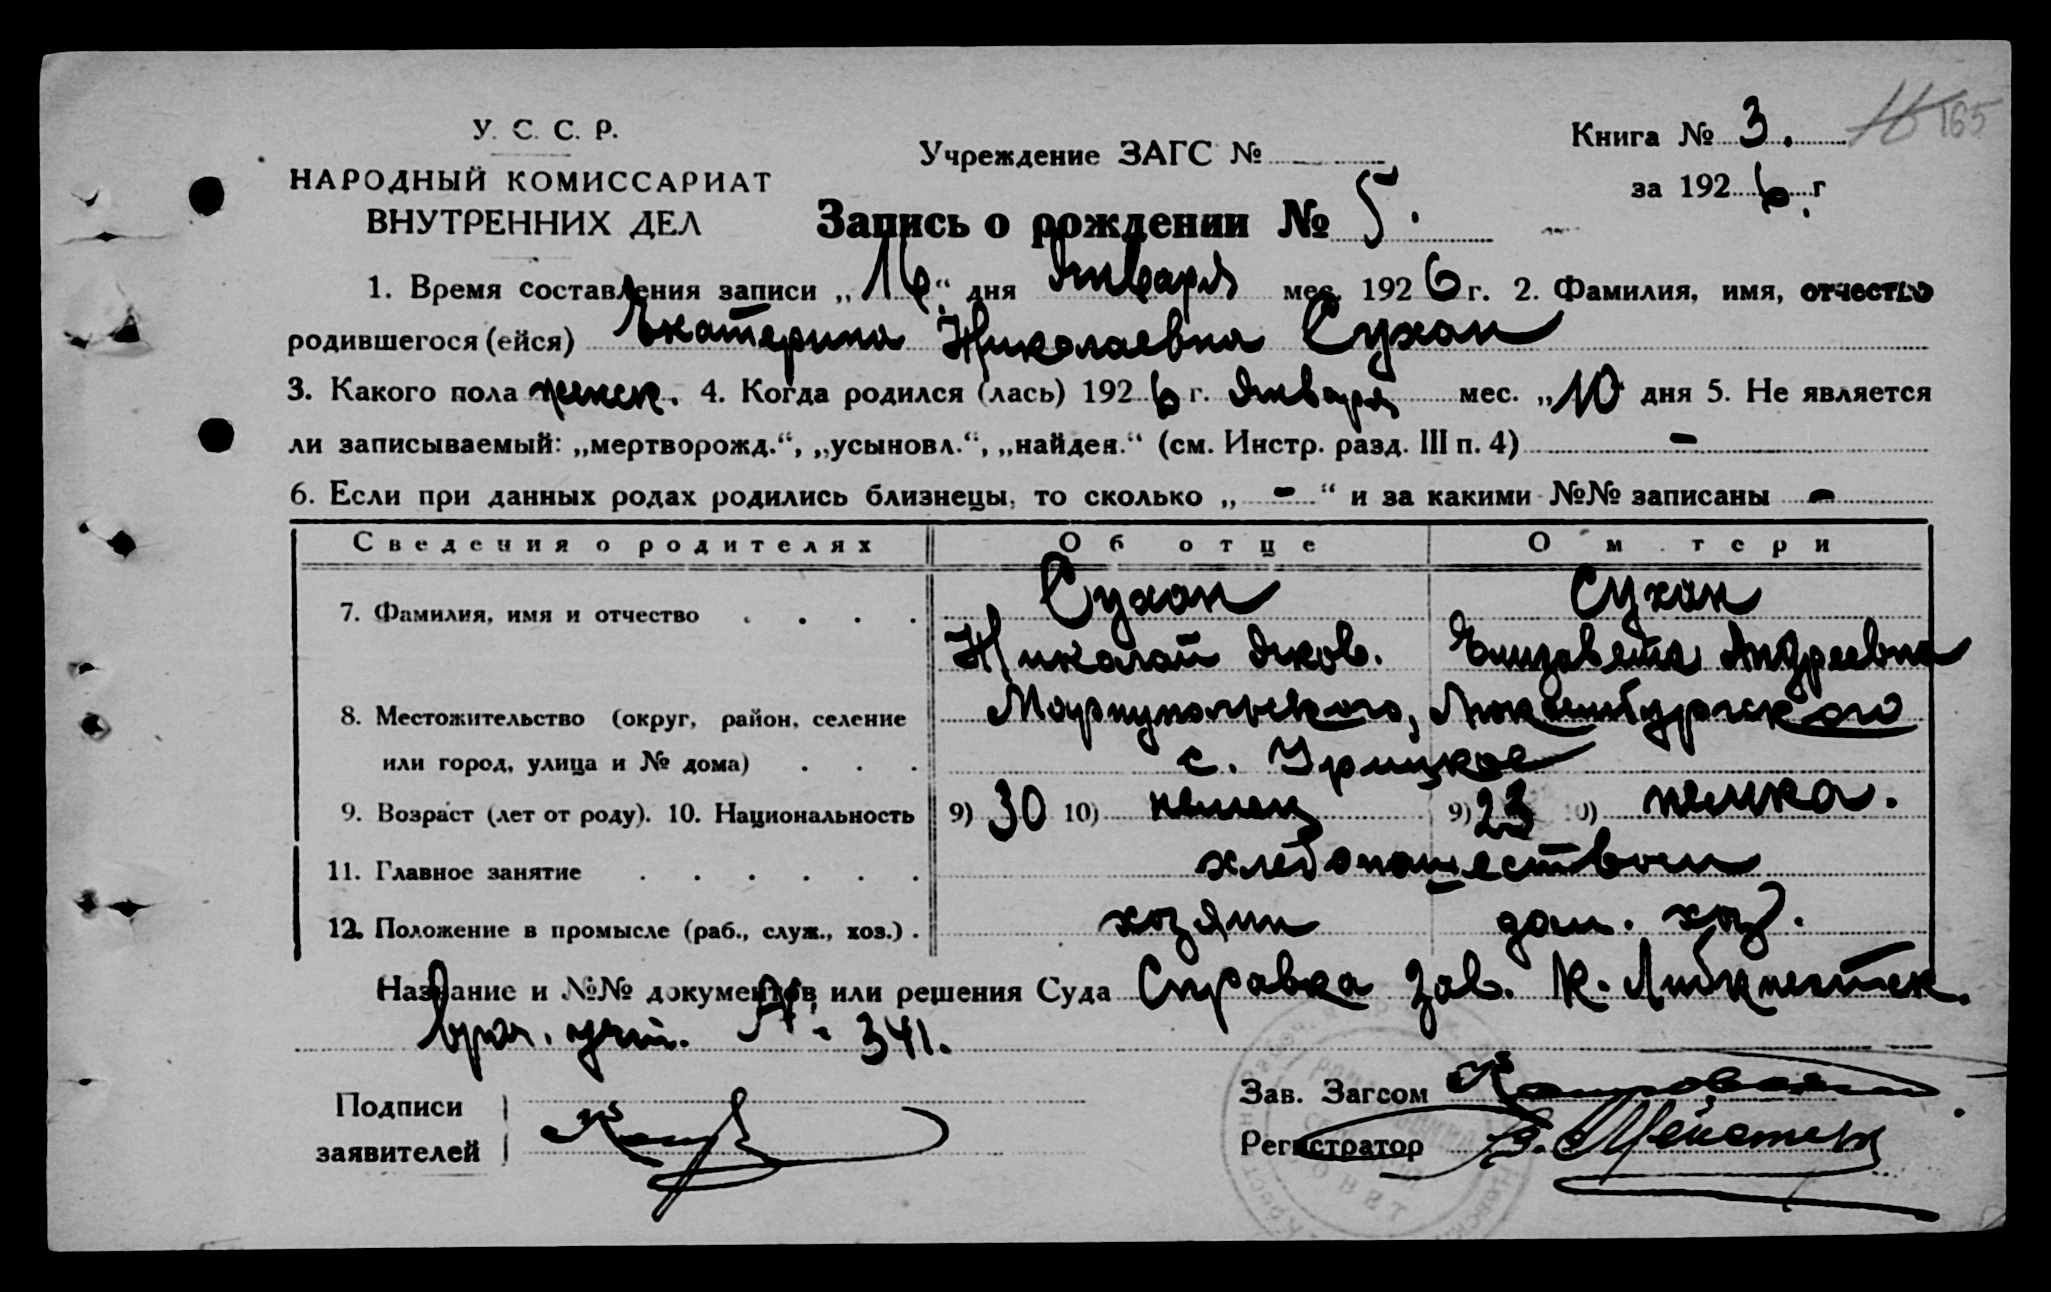 У. С. С. Р.
НАРОДНЫЙ КОМИССАРИАТ
ВНУТРЕННИХ ДЕЛ
Учреждение ЗАГС №
Запись о рождении № 5.
Книга № 3. 165
за 1926 г.
1. Время составления записи „16“ дня Января мес. 1926 г. 2. Фамилия, имя, отчество
родившегося (ейся) Екатерина Николаевна Сухан
3. Какого пола женск. 4. Когда родился (лась) 1926 г. Января мес. „10 дня 5. Не является
ли записываемый: „мертворожд.“, „усыновл.“, „найден.“ (см. Инстр. разд. III п. 4) -
6. Если при данных родах родились близнецы, то сколько „ - “ и за какими №№ записаны -
Сведения о родителях Об отце О м тери
Сухан Сухан
7. Фамилия, имя и отчество
Николай Яков. Елизавета Андреевна
8. Местожительство (округ, район, селение Мариупольского, Люксембургского
или город, улица и № дома) с. Урицкое
9. Возраст (лет от роду). 10. Национальность 9) 30 10) немец 9) 23 10) немка.
11. Главное занятие хлебопашеством
12. Положение в промысле (раб., служ., хоз.) хозяин дом. хоз.
Название и №№ документов или решения Суда Справка Зав. К. Либкнехтск.
врач. уч. № 341.
Подписи
заявителей
Зав. Загсом
Регистратор